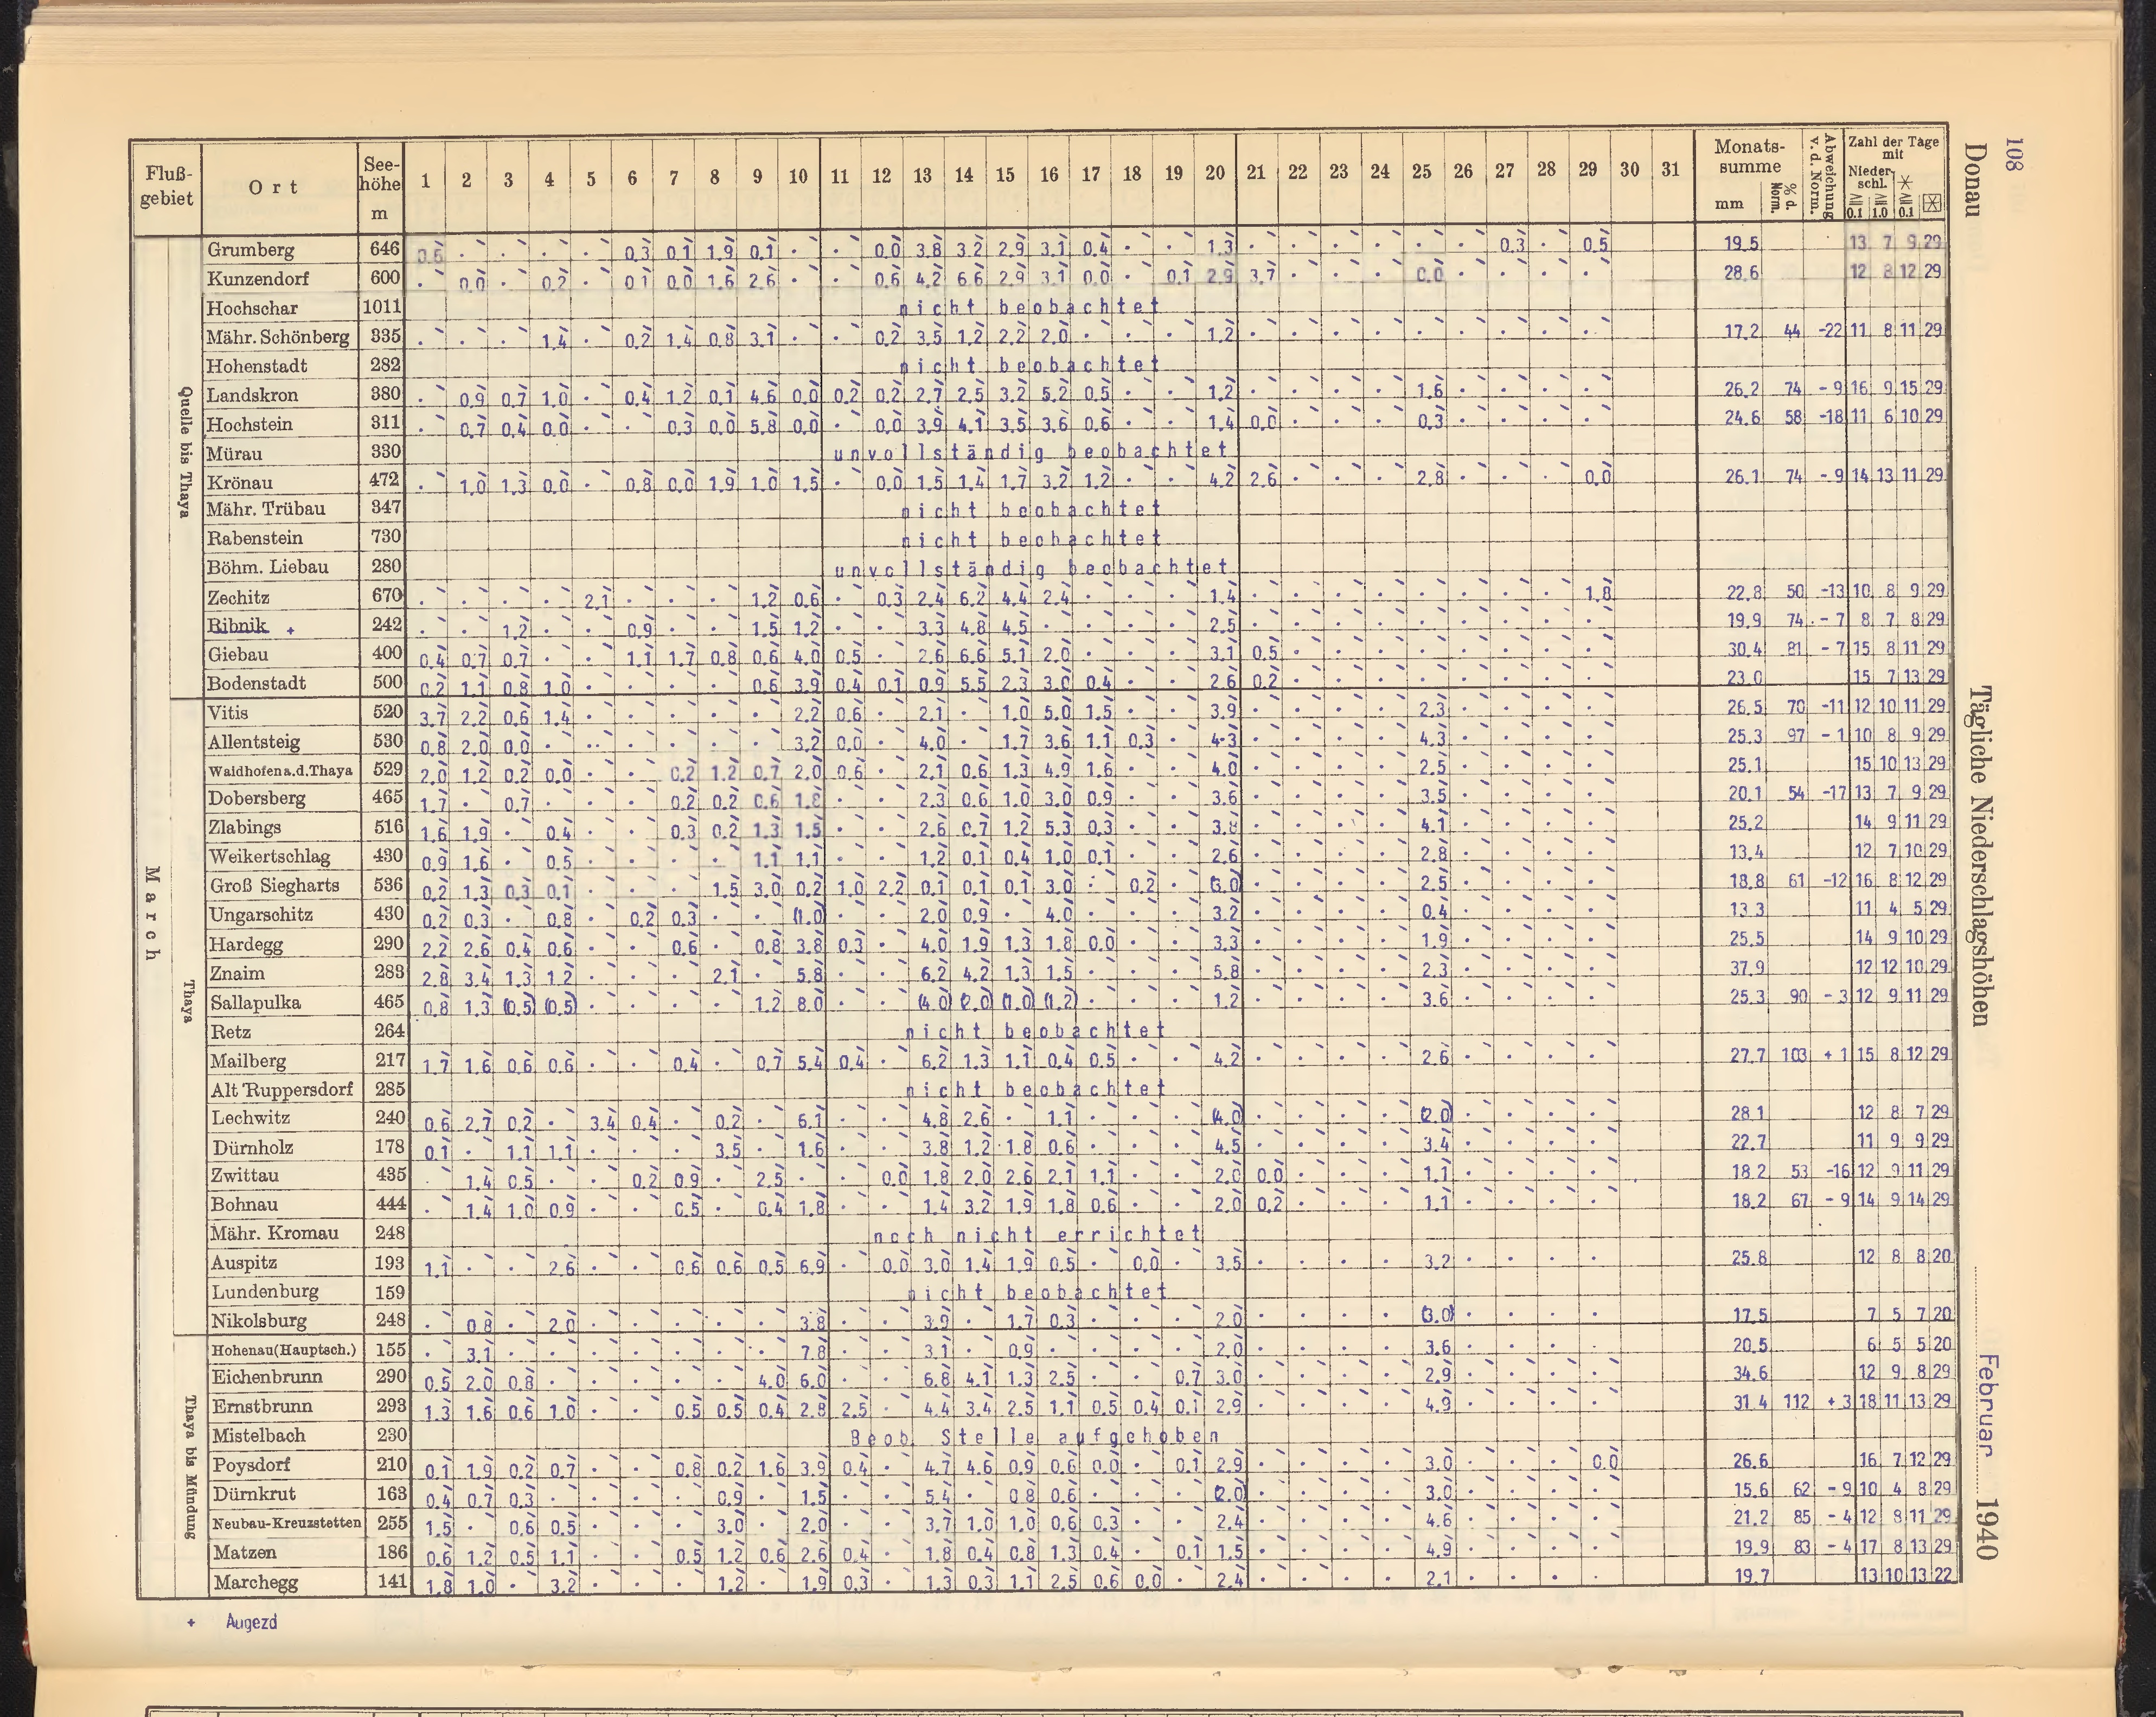 108
Donau
Tägliche Niederschlagshöhen
Februar 1940
Fluß-gebiet Ort See-höhe m 1 2 3 4 5 6 7 8 9 10 11 12 13 14 15 16 17 18 19 20 21 22 23 24 25 26 27 28 29 30 31 Monats-summe mm % d. Norm. Abweichung v. d. Norm. Zahl der Tage mit Nieder-schl. ≧ 0.1 ≧ 1.0 ✳ ≧ 0.1
March
Quelle bis Thaya
Grumberg 646 0.6 . . . . 0.3 0.1 1.9 0.1 . . 0.0 3.8 3.2 2.9 3.1 0.4 . . 1.3 . . . . . . 0.3 . 0.5 19.5 13 7 9 29
Kunzendorf 600 . 0.0 . 0.2 . 0.1 0.0 1.6 2.6 . . 0.6 4.2 6.6 2.9 3.1 0.0 . 0.1 2.9 3.7 . . . 0.0 . . . . 28.6 12 8 12 29
Hochschar 1011 nicht beobachtet
Mähr. Schönberg 335 . . . 1.4 . 0.2 1.4 0.8 3.1 . . 0.2 3.5 1.2 2.2 2.0 . . . 1.2 . . . . . . . . . 17.2 44 -22 11 8 11 29
Hohenstadt 282 nicht beobachtet
Landskron 380 . 0.9 0.7 1.0 . 0.4 1.2 0.1 4.6 0.0 0.2 0.2 2.7 2.5 3.2 5.2 0.5 . . 1.2 . . . . 1.6 . . . . 26.2 74 - 9 16 9 15 29
Hochstein 311 . 0.7 0.4 0.0 . . 0.3 0.0 5.8 0.0 . 0.0 3.9 4.1 3.5 3.6 0.6 . . 1.4 0.0 . . . 0.3 . . . . 24.6 58 -18 11 6 10 29
Mürau 330 unvollständig beobachtet
Krönau 472 . 1.0 1.3 0.0 . 0.8 0.0 1.9 1.0 1.5 . 0.0 1.5 1.4 1.7 3.2 1.2 . . 4.2 2.6 . . . 2.8 . . . 0.0 26.1 74 - 9 14 13 11 29
Mähr. Trübau 347 nicht beobachtet
Rabenstein 730 nicht beobachtet
Böhm. Liebau 280 unvollständig beobachtet
Zechitz 670 . . . . 2.1 . . . 1.2 0.6 . 0.3 2.4 6.2 4.4 2.4 . . . 1.4 . . . . . . . . 1.8 22.8 50 -13 10 8 9 29
Ribnik + 242 . . 1.2 . . 0.9 . . 1.5 1.2 . . 3.3 4.8 4.5 . . . . 2.5 . . . . . . . . . 19.9 74 - 7 8 7 8 29
Giebau 400 0.4 0.7 0.7 . . 1.1 1.7 0.8 0.6 4.0 0.5 . 2.6 6.6 5.1 2.0 . . . 3.1 0.5 . . . . . . . . 30.4 81 - 7 15 8 11 29
Bodenstadt 500 0.2 1.1 0.8 1.0 . . . . 0.6 3.9 0.4 0.1 0.9 5.5 2.3 3.0 0.4 . . 2.6 0.2 . . . . . . . . 23.0 15 7 13 29
Thaya
Vitis 520 3.7 2.2 0.6 1.4 . . . . . 2.2 0.6 . 2.1 . 1.0 5.0 1.5 . . 3.9 . . . . 2.3 . . . . 26.5 70 -11 12 10 11 29
Allentsteig 530 0.8 2.0 0.0 . . . . . . 3.2 0.0 . 4.0 . 1.7 3.6 1.1 0.3 . 4.3 . . . . 4.3 . . . . 25.3 97 - 1 10 8 9 29
Waidhofen a.d.Thaya 529 2.0 1.2 0.2 0.0 . . 0.2 1.2 0.7 2.0 0.6 . 2.1 0.6 1.3 4.9 1.6 . . 4.0 . . . . 2.5 . . . . 25.1 15 10 13 29
Dobersberg 465 1.7 . 0.7 . . . 0.2 0.2 0.6 1.8 . . 2.3 0.6 1.0 3.0 0.9 . . 3.6 . . . . 3.5 . . . . 20.1 54 -17 13 7 9 29
Zlabings 516 1.6 1.9 . 0.4 . . 0.3 0.2 1.3 1.5 . . 2.6 0.7 1.2 5.3 0.3 . . 3.8 . . . . 4.1 . . . . 25.2 14 9 11 29
Weikertschlag 430 0.9 1.6 . 0.5 . . . . 1.1 1.1 . . 1.2 0.1 0.4 1.0 0.1 . . 2.6 . . . . 2.8 . . . . 13.4 12 7 10 29
Groß Siegharts 536 0.2 1.3 0.3 0.1 . . . 1.5 3.0 0.2 1.0 2.2 0.1 0.1 0.1 3.0 . 0.2 . (3.0) . . . . 2.5 . . . . 18.8 61 -12 16 8 12 29
Ungarschitz 430 0.2 0.3 . 0.8 . 0.2 0.3 . . (1.0) . . 2.0 0.9 . 4.0 . . . 3.2 . . . . 0.4 . . . . 13.3 11 4 5 29
Hardegg 290 2.2 2.6 0.4 0.6 . . 0.6 . 0.8 3.8 0.3 . 4.0 1.9 1.3 1.8 0.0 . . 3.3 . . . . 1.9 . . . . 25.5 14 9 10 29
Znaim 283 2.8 3.4 1.3 1.2 . . . 2.1 . 5.8 . . 6.2 4.2 1.3 1.5 . . . 5.8 . . . . 2.3 . . . . 37.9 12 12 10 29
Sallapulka 465 0.8 1.3 (0.5) (0.5) . . . . 1.2 8.0 . . (4.0) (2.0) (1.0) (1.2) . . . 1.2 . . . . 3.6 . . . . 25.3 90 - 3 12 9 11 29
Retz 264 nicht beobachtet
Mailberg 217 1.7 1.6 0.6 0.6 . . 0.4 . 0.7 5.4 0.4 . 6.2 1.3 1.1 0.4 0.5 . . 4.2 . . . . 2.6 . . . . 27.7 103 + 1 15 8 12 29
Alt Ruppersdorf 285 nicht beobachtet
Lechwitz 240 0.6 2.7 0.2 . 3.4 0.4 . 0.2 . 6.1 . . 4.8 2.6 . 1.1 . . . (4.0) . . . . (2.0) . . . . 28.1 12 8 7 29
Dürnholz 178 0.1 . 1.1 1.1 . . . 3.5 . 1.6 . . 3.8 1.2 1.8 0.6 . . . 4.5 . . . . 3.4 . . . . 22.7 11 9 9 29
Zwittau 435 . 1.4 0.5 . . 0.2 0.9 . 2.5 . . 0.0 1.8 2.0 2.6 2.1 1.1 . . 2.0 0.0 . . . 1.1 . . . . 18.2 53 -16 12 9 11 29
Bohnau 444 . 1.4 1.0 0.9 . . 0.5 . 0.4 1.8 . . 1.4 3.2 1.9 1.8 0.6 . . 2.0 0.2 . . . 1.1 . . . . 18.2 67 - 9 14 9 14 29
Mähr. Kromau 248 noch nicht errichtet
Auspitz 193 1.1 . . 2.6 . . 0.6 0.6 0.5 6.9 . 0.0 3.0 1.4 1.9 0.5 . 0.0 . 3.5 . . . . 3.2 . . . . 25.8 12 8 8 20
Lundenburg 159 nicht beobachtet
Nikolsburg 248 . 0.8 . 2.0 . . . . . 3.8 . . 3.9 . 1.7 0.3 . . . 2.0 . . . . (3.0) . . . . 17.5 7 5 7 20
Thaya bis Mündung
Hohenau(Hauptsch.) 155 . 3.1 . . . . . . . 7.8 . . 3.1 . 0.9 . . . . 2.0 . . . . 3.6 . . . . 20.5 6 5 5 20
Eichenbrunn 290 0.5 2.0 0.8 . . . . . 4.0 6.0 . . 6.8 4.1 1.3 2.5 . . 0.7 3.0 . . . . 2.9 . . . . 34.6 12 9 8 29
Ernstbrunn 293 1.3 1.6 0.6 1.0 . . 0.5 0.5 0.4 2.8 2.5 . 4.4 3.4 2.5 1.1 0.5 0.4 0.1 2.9 . . . . 4.9 . . . . 31.4 112 + 3 18 11 13 29
Mistelbach 230 Beob. Stelle aufgehoben
Poysdorf 210 0.1 1.9 0.2 0.7 . . 0.8 0.2 1.6 3.9 0.4 . 4.7 4.6 0.9 0.6 0.0 . 0.1 2.9 . . . . 3.0 . . . 0.0 26.6 16 7 12 29
Dürnkrut 163 0.4 0.7 0.3 . . . . 0.9 . 1.5 . . 5.4 . 0.8 0.6 . . . (2.0) . . . . 3.0 . . . . 15.6 62 - 9 10 4 8 29
Neubau-Kreuzstetten 255 1.5 . 0.6 0.5 . . . 3.0 . 2.0 . . 3.7 1.0 1.0 0.6 0.3 . . 2.4 . . . . 4.6 . . . . 21.2 85 - 4 12 8 11 29
Matzen 186 0.6 1.2 0.5 1.1 . . 0.5 1.2 0.6 2.6 0.4 . 1.8 0.4 0.8 1.3 0.4 . 0.1 1.5 . . . . 4.9 . . . . 19.9 83 - 4 17 8 13 29
Marchegg 141 1.8 1.0 . 3.2 . . . 1.2 . 1.9 0.3 . 1.3 0.3 1.1 2.5 0.6 0.0 . 2.4 . . . . 2.1 . . . . 19.7 13 10 13 22
+ Augezd